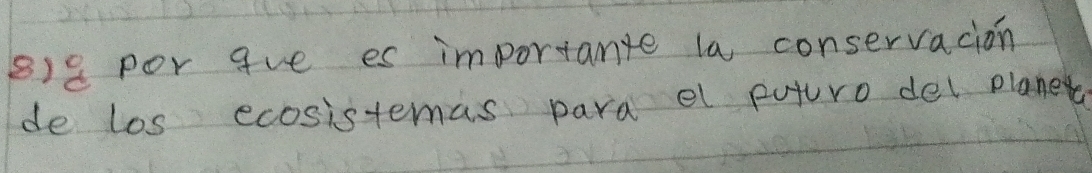 8)¿ por que es importante la conservación
de los ecosistemas para el futuro del planeta.